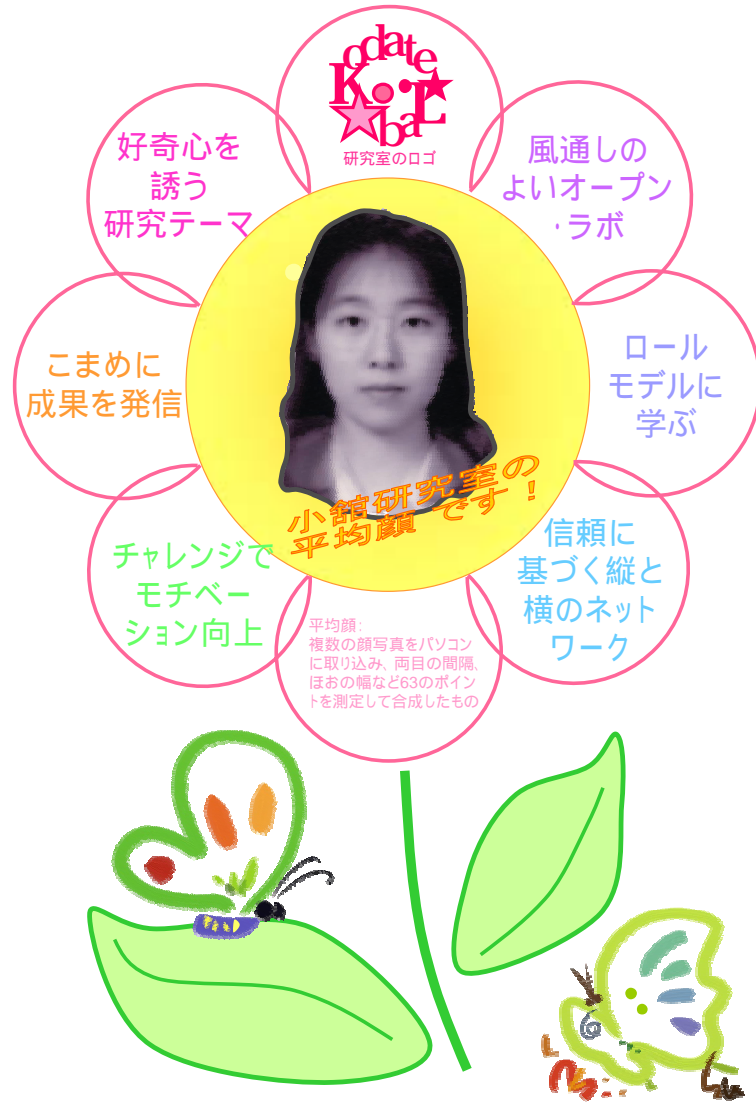 Kodate
Lab
研究室のロゴ
好奇心を
誘う
研究テーマ
風通しの
よいオープン
・ラボ
こまめに
成果を発信
ロール
モデルに
学ぶ
小舘研究室の
平均顔 です！
チャレンジで
モチベー
ション向上
信頼に
基づく縦と
横のネット
ワーク
平均顔：
複数の顔写真をパソコン
に取り込み、両目の間隔、
ほおの幅など63のポイン
トを測定して合成したもの